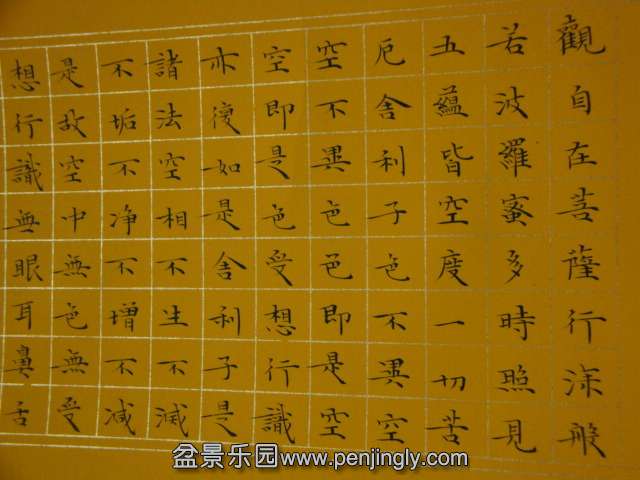 觀自在菩薩行深般
若波羅蜜多時照見
五蘊皆空度一切苦
厄舍利子色不異空
空不異色色即是空
空即是色受想行識
亦復如是舍利子是
諸法空相不生不滅
不垢不净不增不減
是故空中無色無受
想行識無眼耳鼻舌
盆景乐园www.penjingly.com